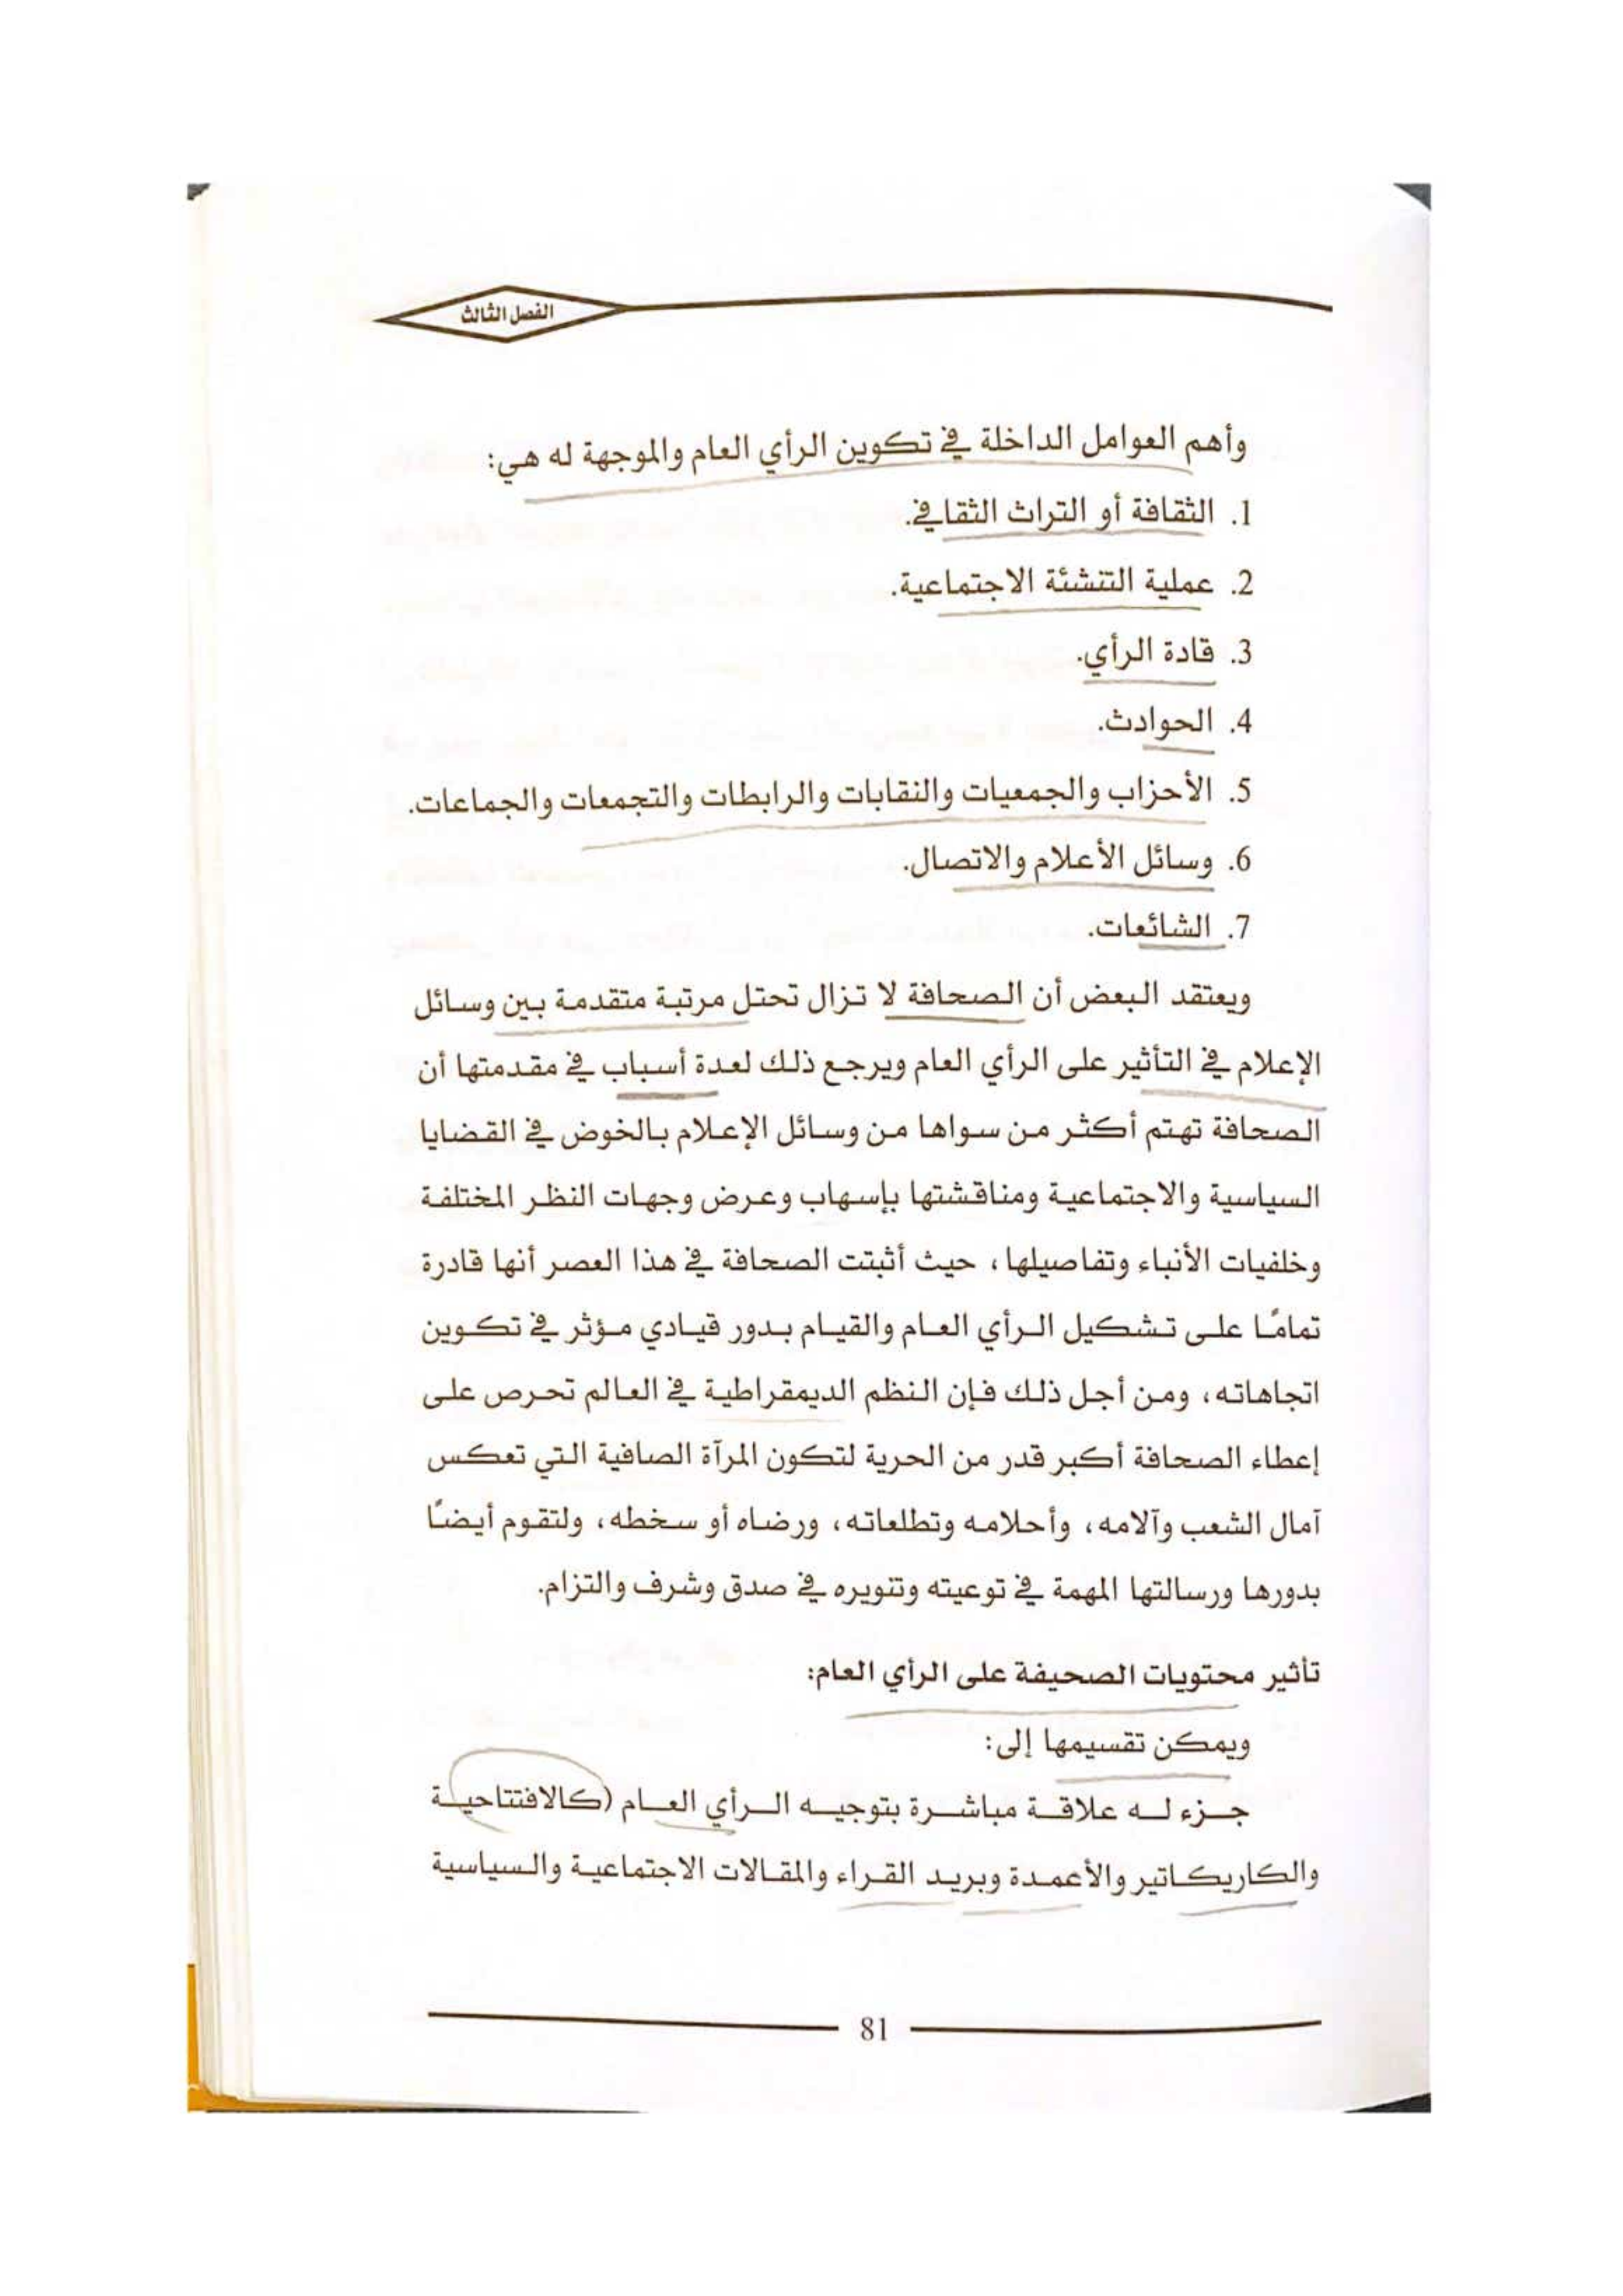 الفصل الثالث
وأهم العوامل الداخلة في تكوين الرأي العام والموجهة له هي:
1. الثقافة أو التراث الثقافي.
2. عملية التنشئة الاجتماعية.
3. قادة الرأي.
4. الحوادث.
5. الأحزاب والجمعيات والنقابات والرابطات والتجمعات والجماعات.
6. وسائل الأعلام والاتصال.
7. الشائعات.
ويعتقد البعض أن الصحافة لا تزال تحتل مرتبة متقدمة بين وسائل
الإعلام في التأثير على الرأي العام ويرجع ذلك لعدة أسباب في مقدمتها أن
الصحافة تهتم أكثر من سواها من وسائل الإعلام بالخوض في القضايا
السياسية والاجتماعية ومناقشتها بإسهاب وعرض وجهات النظر المختلفة
وخلفيات الأنباء وتفاصيلها، حيث أثبتت الصحافة في هذا العصر أنها قادرة
تمامًا على تشكيل الرأي العام والقيام بدور قيادي مؤثر في تكوين
اتجاهاته، ومن أجل ذلك فإن النظم الديمقراطية في العالم تحرص على
إعطاء الصحافة أكبر قدر من الحرية لتكون المرآة الصافية التي تعكس
آمال الشعب وآلامه، وأحلامه وتطلعاته، ورضاه أو سخطه، ولتقوم أيضًا
بدورها ورسالتها المهمة في توعيته وتنويره في صدق وشرف والتزام.
تأثير محتويات الصحيفة على الرأي العام:
ويمكن تقسيمها إلى:
جزء له علاقة مباشرة بتوجيه الرأي العام (كالافتتاحية
والكاريكاتير والأعمدة وبريد القراء والمقالات الاجتماعية والسياسية
81